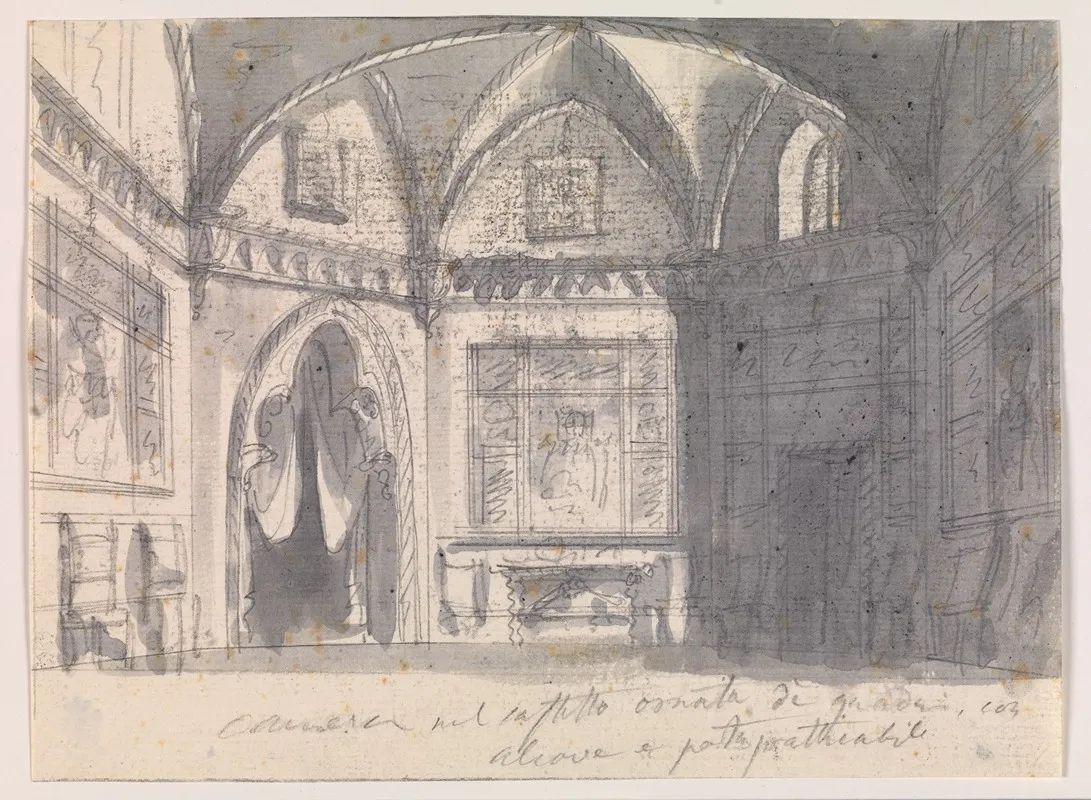 camera nel castello ornata di quadri, con
alcove e porta pratticabile